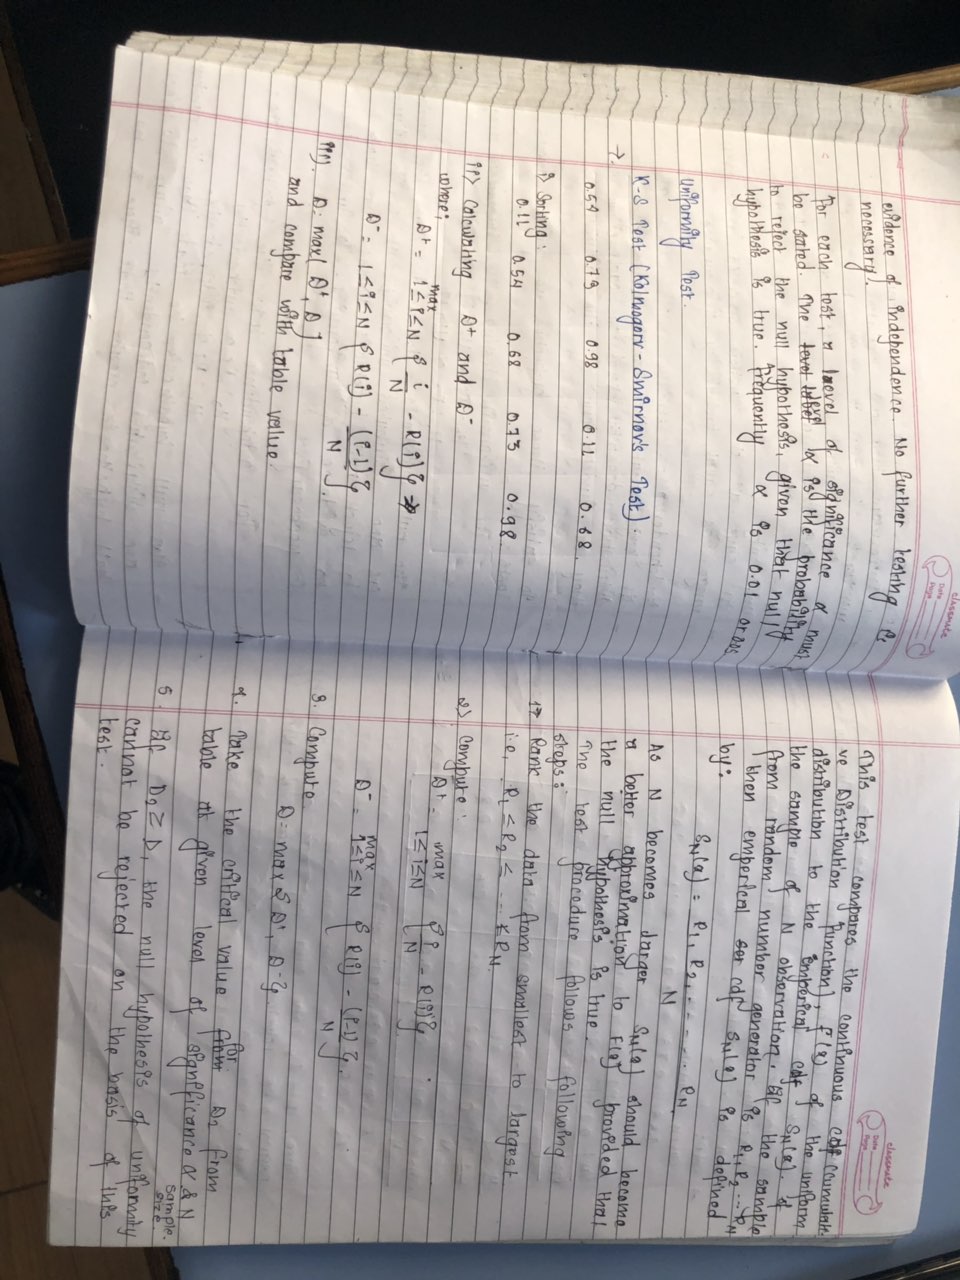 classmate
Date
Page
evidence of independence. No further testing is
necessary.
For each test, a level of significance α must
be sated. The level α is the probability
to reject the null hypothesis, given that null
hypothesis is true. frequently α is 0.01 or 0.05
Uniformity Test.
→. K-S Test (Kolmogorv-Smirnov's Test).
0.54 0.73 0.98 0.11 0.68
i) Sorting:
0.11 0.54 0.68 0.73 0.98
ii) Calculating D⁺ and D⁻
where;
D⁺ = max 1≤i≤N { i/N - R(i)}
D⁻ = 1≤i≤N { R(i) - (i-1)/N }
iii). D = max( D⁺, D⁻)
and compare with table value.
classmate
Date
Page
This test compares the continuous cdf (cumulati-
ve Distribution function), F(x) of the uniform
distribution to the emperical cdf SN(x). of
the sample of N observation. If the sample
from random number generator is R1, R2 ... RN
then emperical cdf SN(x) is defined
by:
SN(x) = R1, R2, ........ RN / N
As N becomes larger SN(x) should become
a better approximation to F(x) provided that
the null hypothesis is true.
The test procedure follows following
steps:
1) Rank the data from smallest to largest
i.e. R1 ≤ R2 ≤ ...... ≤ RN.
2) Compute:
D⁺ = max 1≤i≤N { i/N - R(i)}
D⁻ = max 1≤i≤N { R(i) - (i-1)/N }.
3. Compute
D = max { D⁺, D⁻}.
4. Take the critical value for D2 from
table at given level of significance α & N sample size.
5. If D2 ≥ D, the null hypothesis of uniformity
cannot be rejected on the basis of this
test.